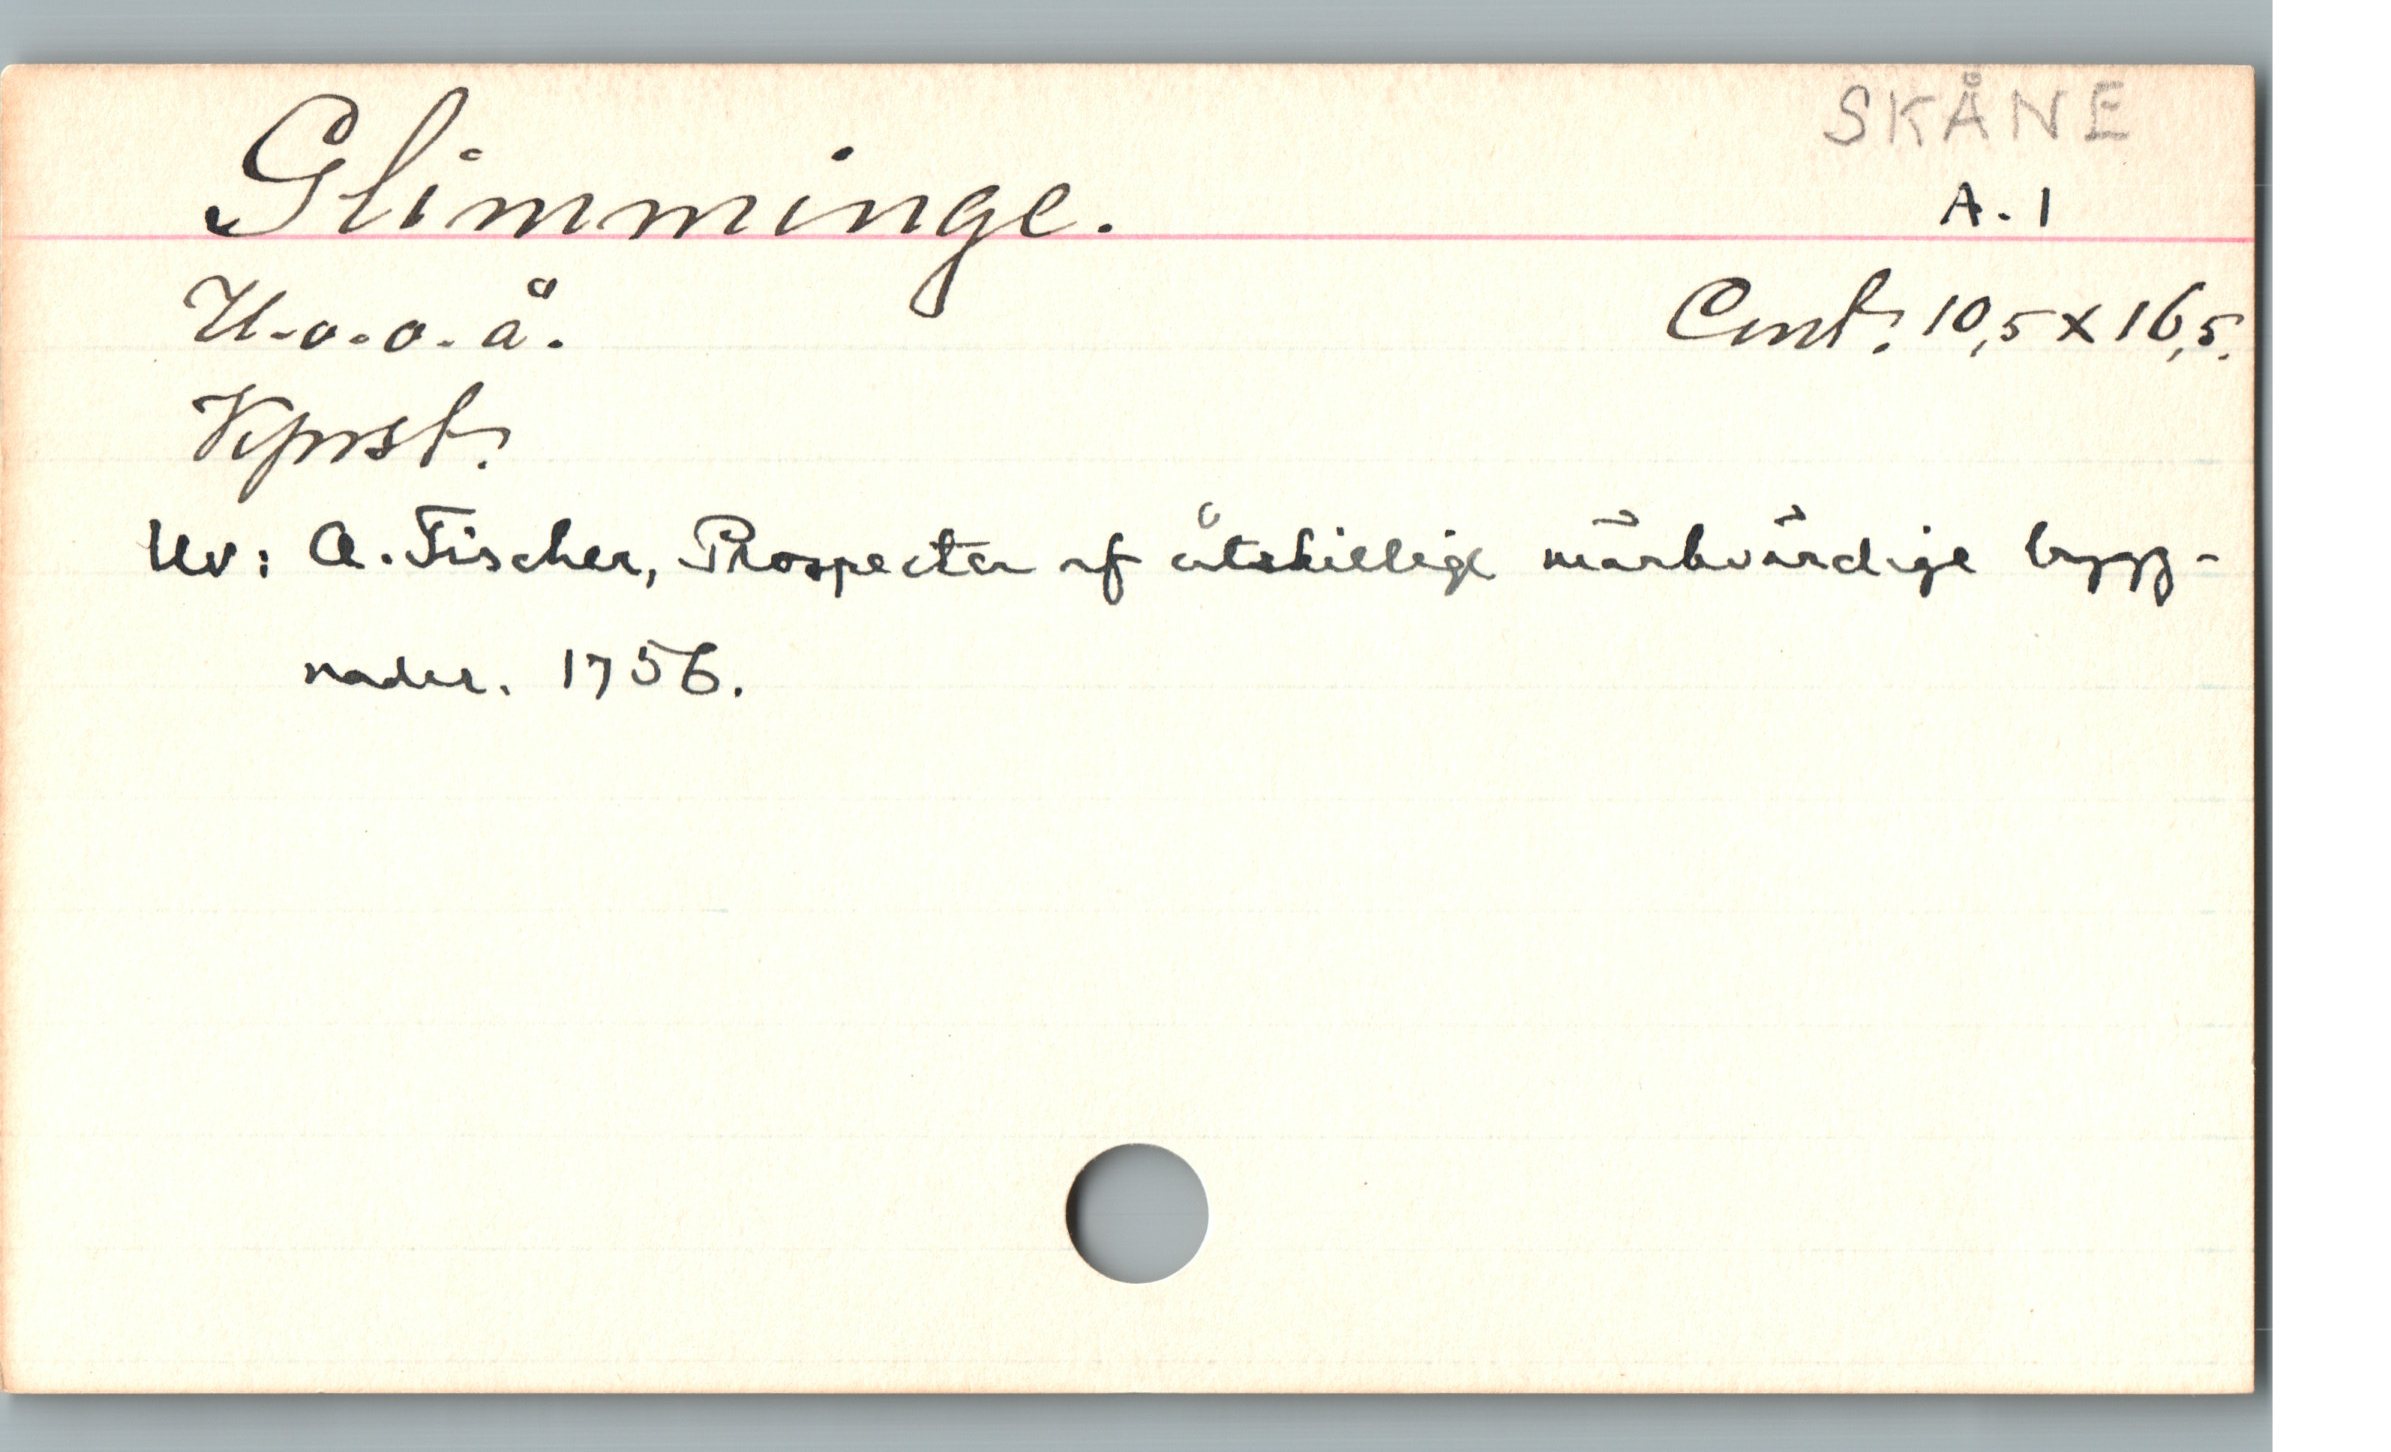 SKÅNE
Glimminge. A. 1
U. o. o. å. Cmt. 10,5 x 16,5.
Kprst.
Ur: A. Fischer, Prospecter af åtskillige märkvärdige bygg-
nader. 1756.